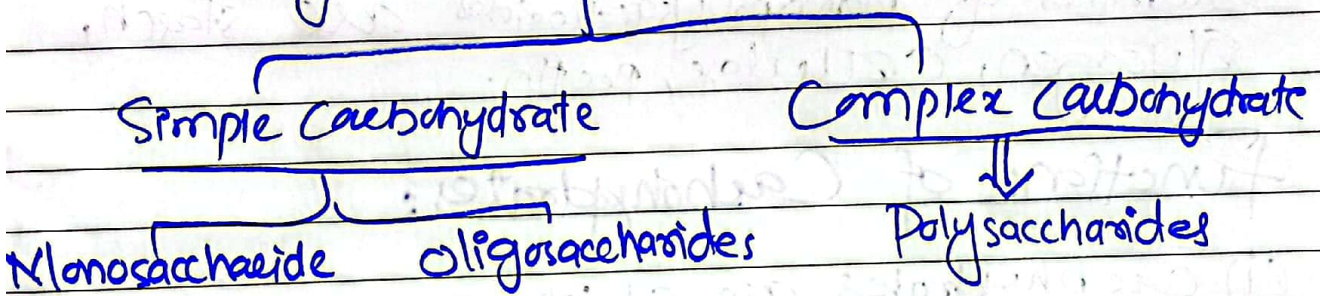 Simple Carbohydrate Complex Carbohydrate
Monosaccharide Oligosaccharides Polysaccharides